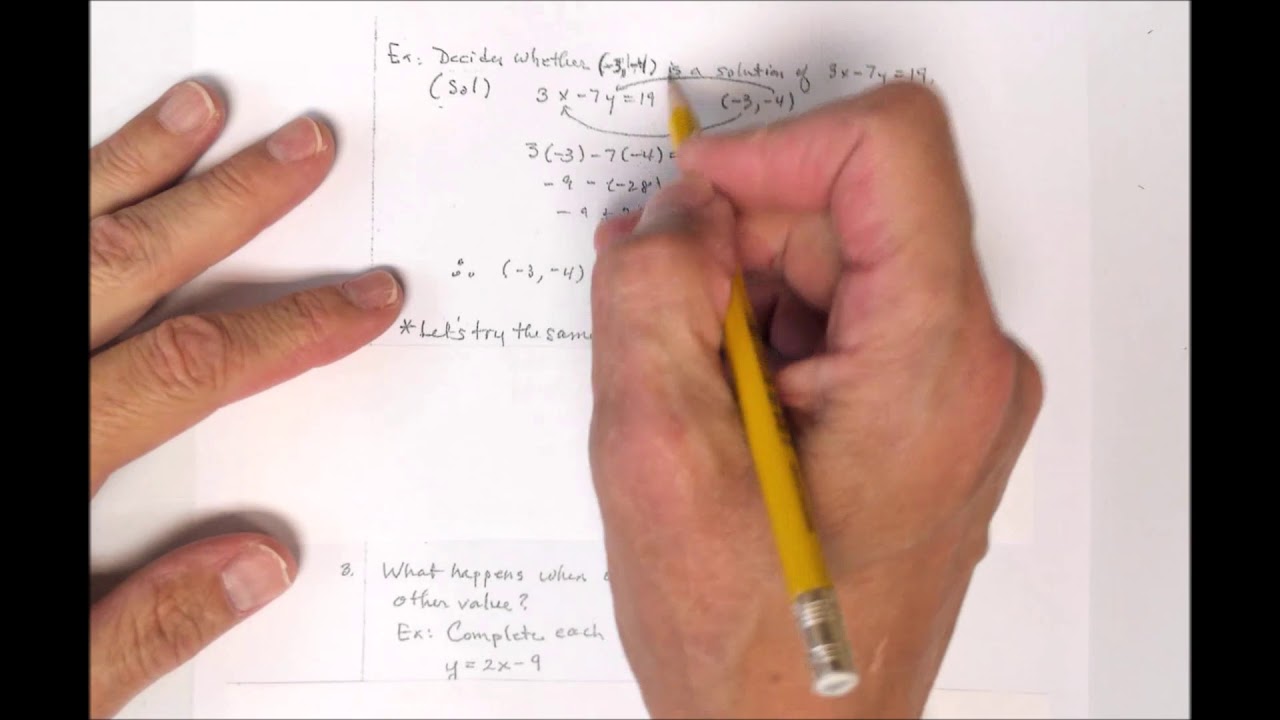 Ex: Decides whether (-3,-4) is a solution of 3x-7y=19.
(Sol) 3x-7y=19 (-3,-4)
3(-3)-7(-4)=
-9-(-28)
-9+
∴ (-3,-4)
*Let's try the same
3. What happens when
other value?
Ex: Complete each
y=2x-9